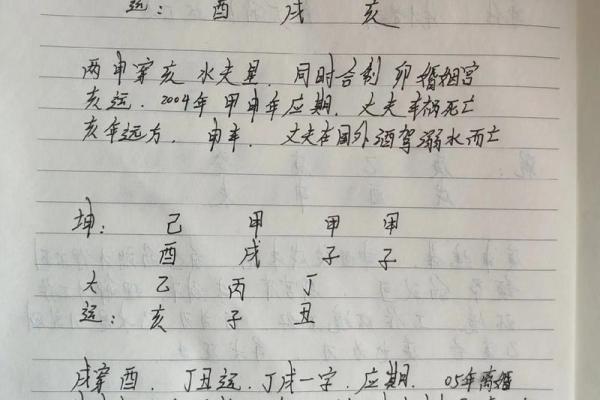 运: 酉 戌 亥
两申穿亥 水夫星. 同时合刻 卯婚姻宫
亥运. 2004年 甲申年应期. 丈夫车祸死亡
亥年远方. 申车. 丈夫在国外酒驾溺水而亡
坤: 己 甲 甲 甲
酉 戌 子 子
大 乙 丙 丁
运: 亥 子 丑
戌穿酉. 丁丑运. 丁戌一字. 应期. 05年离婚